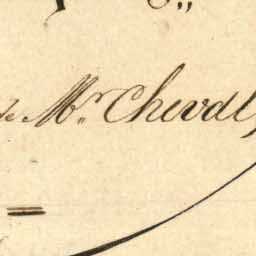 Mr. Chevdl